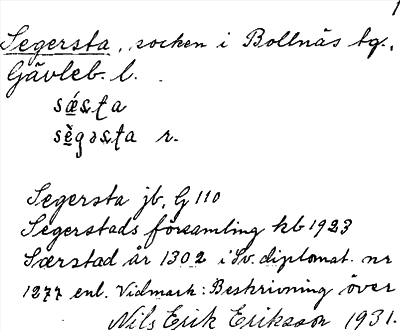 1
Segersta, socken i Bollnäs tg.,
Gävleb. l.
sǽʂʈa
sè̤gəʂʈa r.
Segersta jb, G 110
Segerstads församling kb 1923
Særstad år 1302 i Sv. diplomat. nr
1277 enl. Vidmark: Beskrivning över
Nils Erik Eriksson 1931.